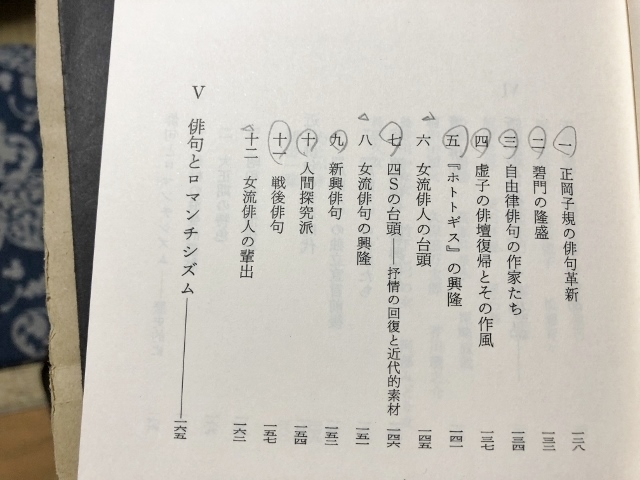 一 正岡子規の俳句革新 一二八
二 碧門の隆盛 一三三
三 自由律俳句の作家たち 一三四
四 虚子の俳壇復帰とその作風 一三七
五 『ホトトギス』の興隆 一四一
六 女流俳人の台頭 一四五
七 四Sの台頭——抒情の回復と近代的素材 一四六
八 女流俳句の興隆 一五一
九 新興俳句 一五二
十 人間探究派 一五四
十一 戦後俳句 一五七
十二 女流俳人の輩出 一六二
V 俳句とロマンチシズム——一六五